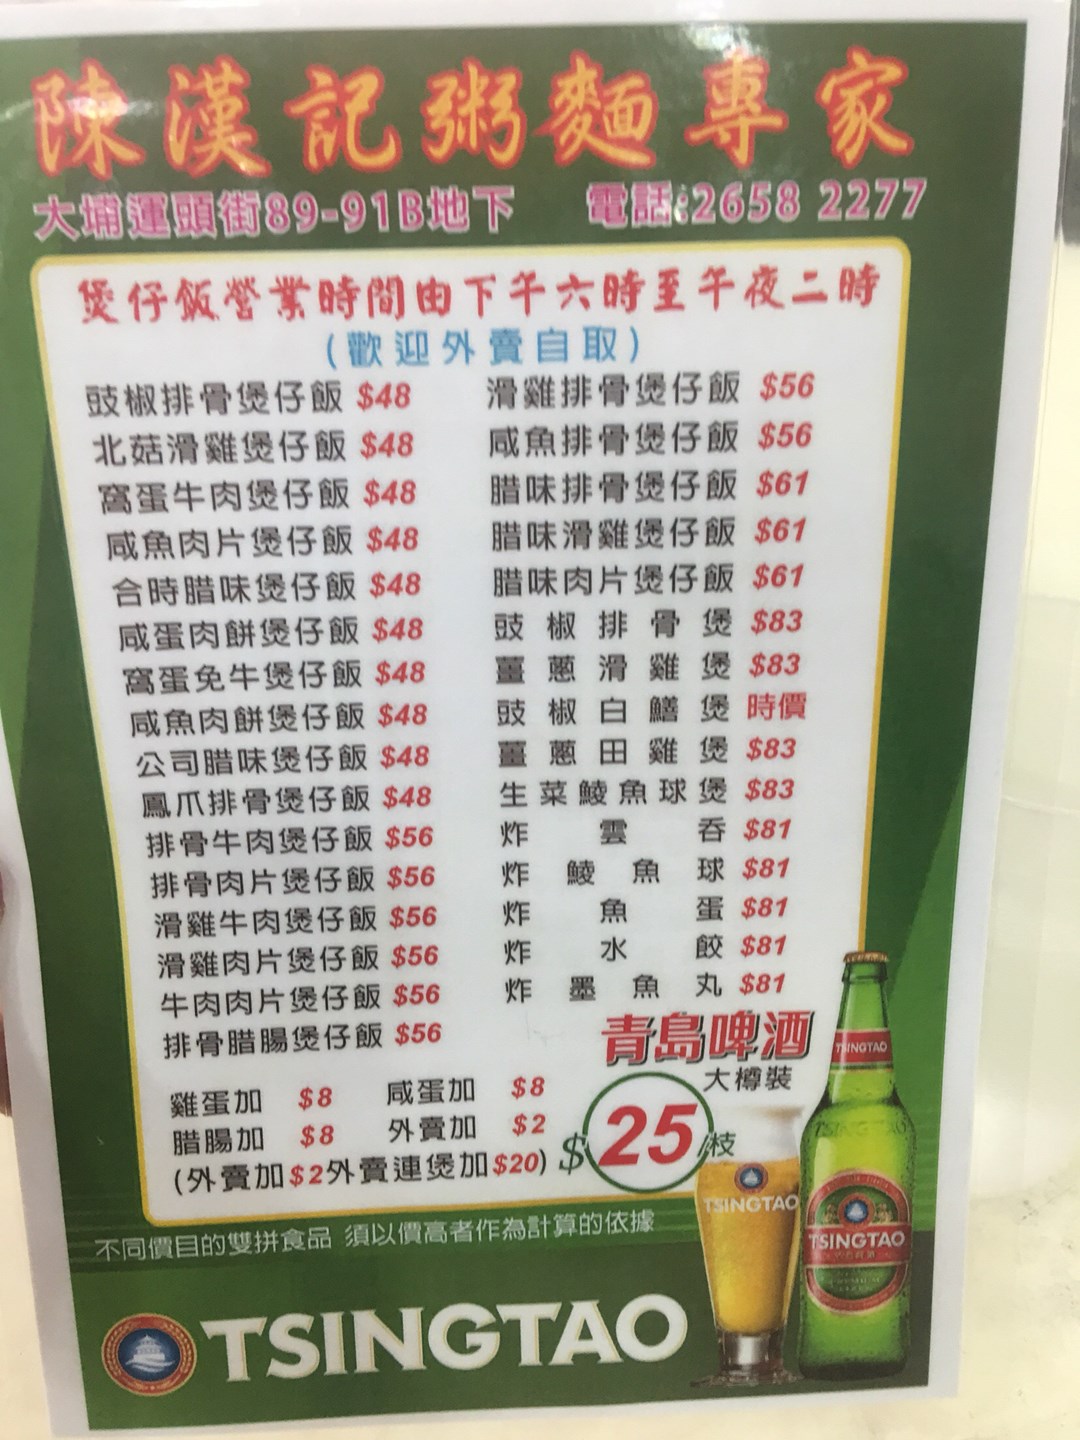 陳漢記粥麵專家
大埔運頭街89-91B地下 電話:2658 2277
煲仔飯營業時間由下午六時至午夜二時
(歡迎外賣自取)
豉椒排骨煲仔飯 $48
北菇滑雞煲仔飯 $48
窩蛋牛肉煲仔飯 $48
咸魚肉片煲仔飯 $48
合時腊味煲仔飯 $48
咸蛋肉餅煲仔飯 $48
窩蛋免牛煲仔飯 $48
咸魚肉餅煲仔飯 $48
公司腊味煲仔飯 $48
鳳爪排骨煲仔飯 $48
排骨牛肉煲仔飯 $56
排骨肉片煲仔飯 $56
滑雞牛肉煲仔飯 $56
滑雞肉片煲仔飯 $56
牛肉肉片煲仔飯 $56
排骨腊腸煲仔飯 $56
滑雞排骨煲仔飯 $56
咸魚排骨煲仔飯 $56
腊味排骨煲仔飯 $61
腊味滑雞煲仔飯 $61
腊味肉片煲仔飯 $61
豉椒排骨煲 $83
薑蔥滑雞煲 $83
豉椒白鱔煲 時價
薑蔥田雞煲 $83
生菜鯪魚球煲 $83
炸雲吞 $81
炸鯪魚球 $81
炸魚蛋 $81
炸水餃 $81
炸墨魚丸 $81
雞蛋加 $8 咸蛋加 $8
腊腸加 $8 外賣加 $2
(外賣加$2外賣連煲加$20)
青島啤酒
大樽裝
$25/枝
TSINGTAO
TSINGTAO
TSINGTAO
不同價目的雙拼食品 須以價高者作為計算的依據
TSINGTAO